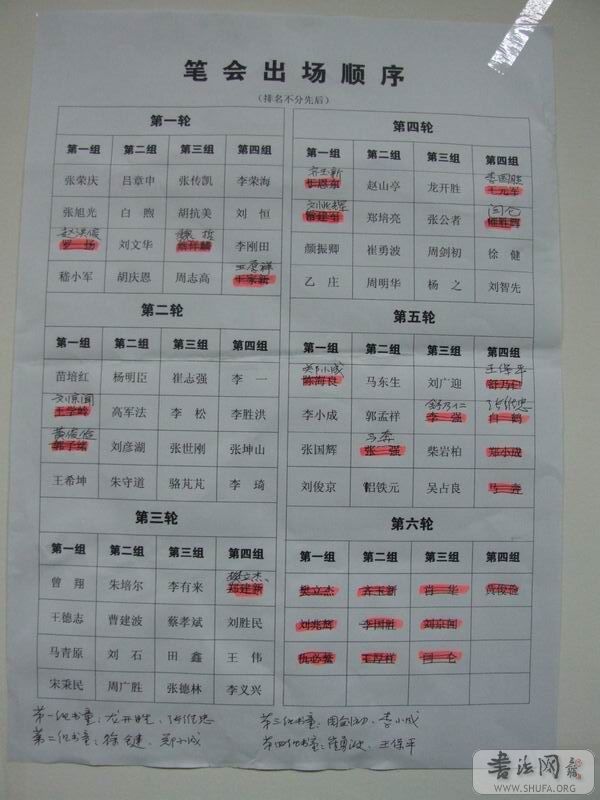 笔会出场顺序
（排名不分先后）
第一轮
第一组 第二组 第三组 第四组
张荣庆 吕章申 张传凯 李荣海
张旭光 白煦 胡抗美 刘恒
赵洪俊 魏哲
罗扬 刘文华 熊祥麟 李刚田
王厚祥
嵇小军 胡庆恩 周志高 王家新
第二轮
第一组 第二组 第三组 第四组
苗培红 杨明臣 崔志强 李一
刘京闻
王学岭 高军法 李松 李胜洪
黄俊俭
郭子绪 刘彦湖 张世刚 张坤山
王希坤 朱守道 骆芃芃 李琦
第三轮
第一组 第二组 第三组 第四组
樊立杰
曾翔 朱培尔 李有来 郑建新
王德志 曹建波 蔡孝斌 刘胜民
马青原 刘石 田鑫 王伟
宋秉民 周广胜 张德林 李义兴
第四轮
第一组 第二组 第三组 第四组
齐玉新 李国胜
赵山亭 龙开胜 王元军
刘兆辉 闫仑
曾建车 郑培亮 张公者
颜振卿 崔勇波 周剑初 徐健
乙庄 周明华 杨之 刘智先
第五轮
第一组 第二组 第三组 第四组
郑小成 王保平
陈海良 马东生 刘广迎 舒乃仁
舒乃仁 张继忠
李小成 郭孟祥 李强 白鹤
马奔
张国辉 张强 柴岩柏 郑小成
刘俊京 铝铁元 吴占良 马奔
第六轮
第一组 第二组 第三组 第四组
樊立杰 齐玉新 肖华 黄俊俭
刘兆辉 李国胜 刘京闻
仇必鳌 王厚祥 闫仑
第一组书童：龙开胜、张继忠
第二组书童：徐健、郑小成
第三组书童：周剑初、李小成
第四组书童：崔勇波、王保平
书法网
WWW.SHUFA.ORG